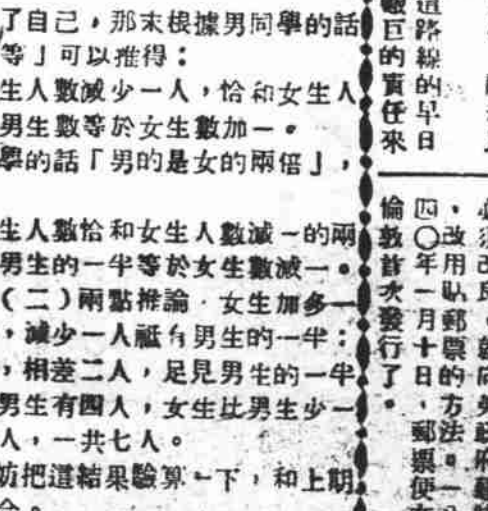 了自己，那末根據男同學的話
等」可以推得：
生人數減少一人，恰和女生人
男生數等於女生數加一。
學的話「男的是女的兩倍」，
生人數恰和女生人數減一的兩
男生的一半等於女生數減一。
（二）兩點推論．女生加多一
，減少一人祗有男生的一半：
，相差二人，足見男生的一半
男生有四人，女生比男生少一
人，一共七人。
妨把這結果驗算一下，和上期
合。
道路線的早日
艱巨的責任來
必須改
，改用貼郵票的方法。一八
四〇年一月十日，郵票便在
倫敦首次發行了。